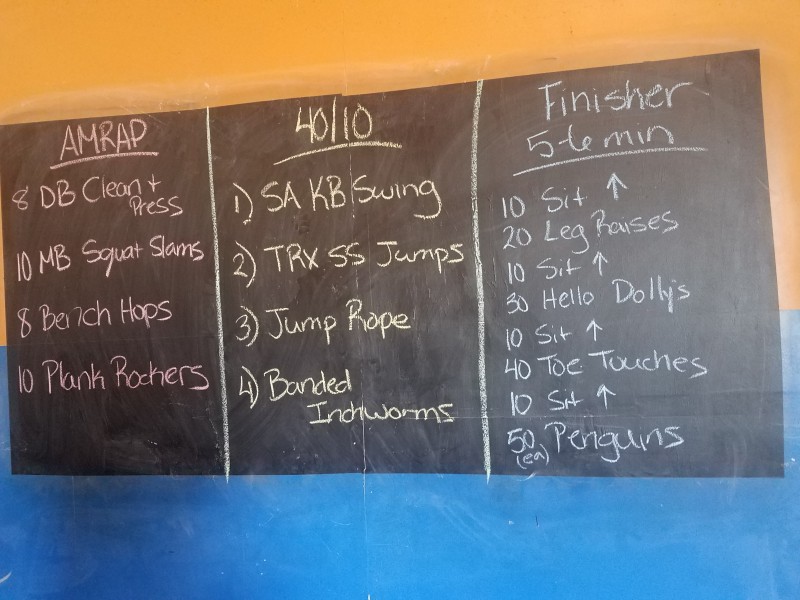 AMRAP
8 DB Clean +
Press
10 MB Squat Slams
8 Bench Hops
10 Plank Rockers
40/10
1) SA KB Swing
2) TRX SS Jumps
3) Jump Rope
4) Banded
Inchworms
Finisher
5-6 min
10 Sit ↑
20 Leg Raises
10 Sit ↑
30 Hello Dolly's
10 Sit ↑
40 Toe Touches
10 Sit ↑
50 Penguins
(ea)